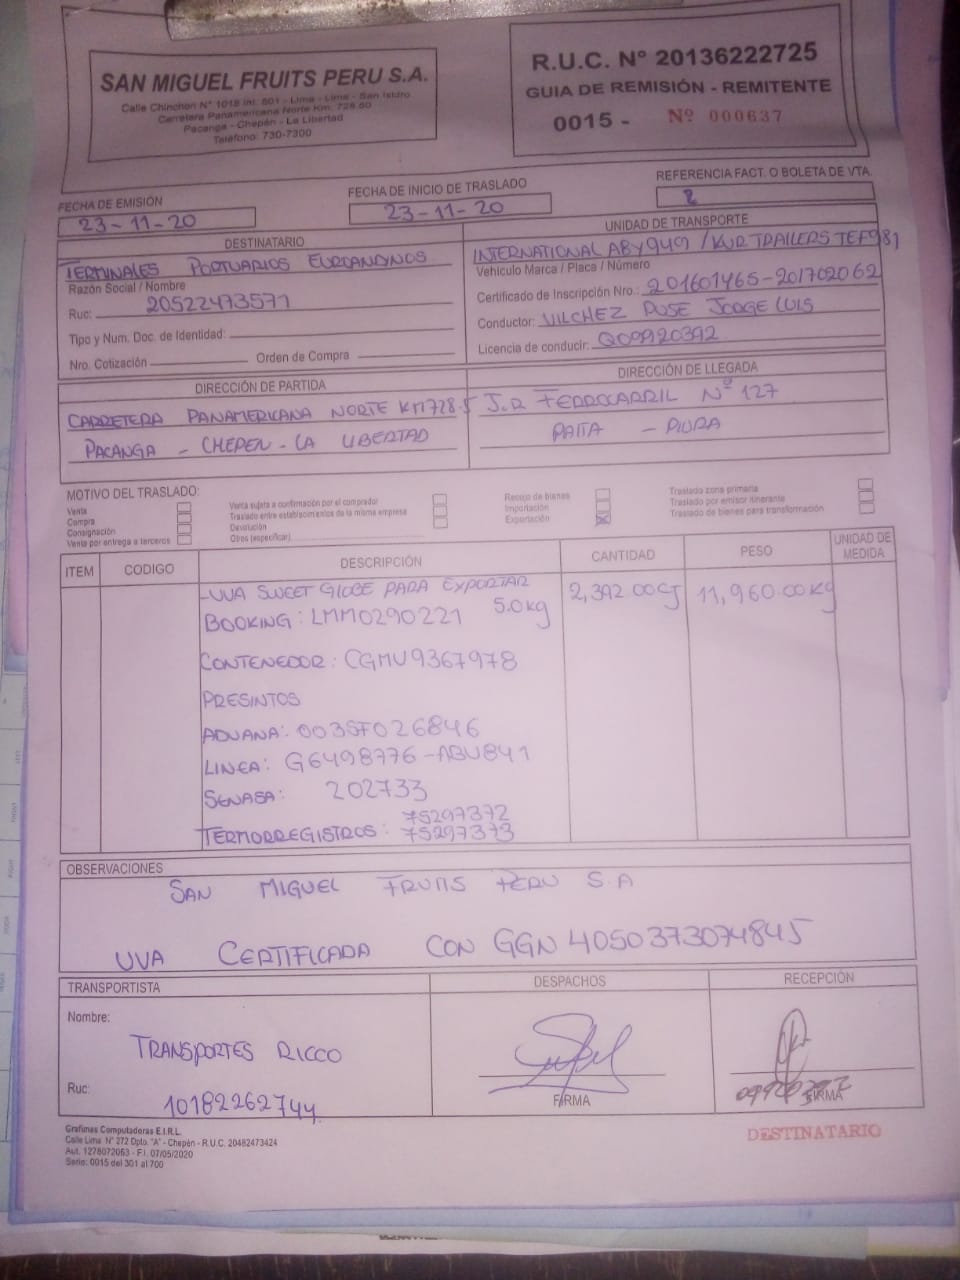 SAN MIGUEL FRUITS PERU S.A.
Calle Chinchon N° 1018 Int. 601 - Lima - Lima - San Isidro
Carretera Panamericana Norte Km. 728.50
Pacanga - Chepén - La Libertad
Teléfono: 730-7300
R.U.C. N° 20136222725
GUIA DE REMISIÓN - REMITENTE
0015 - Nº 000637
FECHA DE EMISIÓN
23-11-20
FECHA DE INICIO DE TRASLADO
23-11-20
REFERENCIA FACT. O BOLETA DE VTA.
DESTINATARIO
TERMINALES PORTUARIOS EUROANDYNOS
Razón Social / Nombre
Ruc: 20522473571
Tipo y Num. Doc. de Identidad:
Nro. Cotización Orden de Compra
UNIDAD DE TRANSPORTE
INTERNATIONAL ABY949 / KUR TRAILERS TEF981
Vehículo Marca / Placa / Número
Certificado de Inscripción Nro.: 201601465-201702062
Conductor: VILCHEZ PUSE JORGE LUIS
Licencia de conducir: Q09920392
DIRECCIÓN DE PARTIDA
CARRETERA PANAMERICANA NORTE KM728.5
PACANGA - CHEPEN - LA LIBERTAD
DIRECCIÓN DE LLEGADA
J.R FERROCARRIL Nº 127
PAITA - PIURA
MOTIVO DEL TRASLADO:
Venta
Compra
Consignación
Venta por entrega a terceros
Venta sujeta a confirmación por el comprador
Traslado entre establecimientos de la misma empresa
Devolución
Otros (especificar)
Recojo de bienes
Importación
Exportación
Traslado zona primaria
Traslado por emisor itinerante
Traslado de bienes para transformación
ITEM CODIGO DESCRIPCIÓN CANTIDAD PESO UNIDAD DE MEDIDA
-UVA SWEET GLOBE PARA EXPORTAR 2,392.00CJ 11,960.00Kg
5.0kg
BOOKING: LMM0290221
CONTENEDOR: CGMU9367978
PRESINTOS
ADUANA: 003SF026846
LINEA: G6498776-ABU841
SENASA: 202733
75297372
TERMORREGISTROS: 75297373
OBSERVACIONES
SAN MIGUEL FRUITS PERU S.A
UVA CERTIFICADA CON GGN 4050373074845
TRANSPORTISTA
Nombre:
TRANSPORTES RICCO
Ruc:
10182262744
DESPACHOS
FIRMA
RECEPCIÓN
FIRMA
Grafimas Computadoras E.I.R.L.
Calle Lima N° 272 Dpto. "A" - Chepén - R.U.C. 20482473424
Aut. 1278072063 - F.I. 07/05/2020
Serie: 0015 del 301 al 700
DESTINATARIO